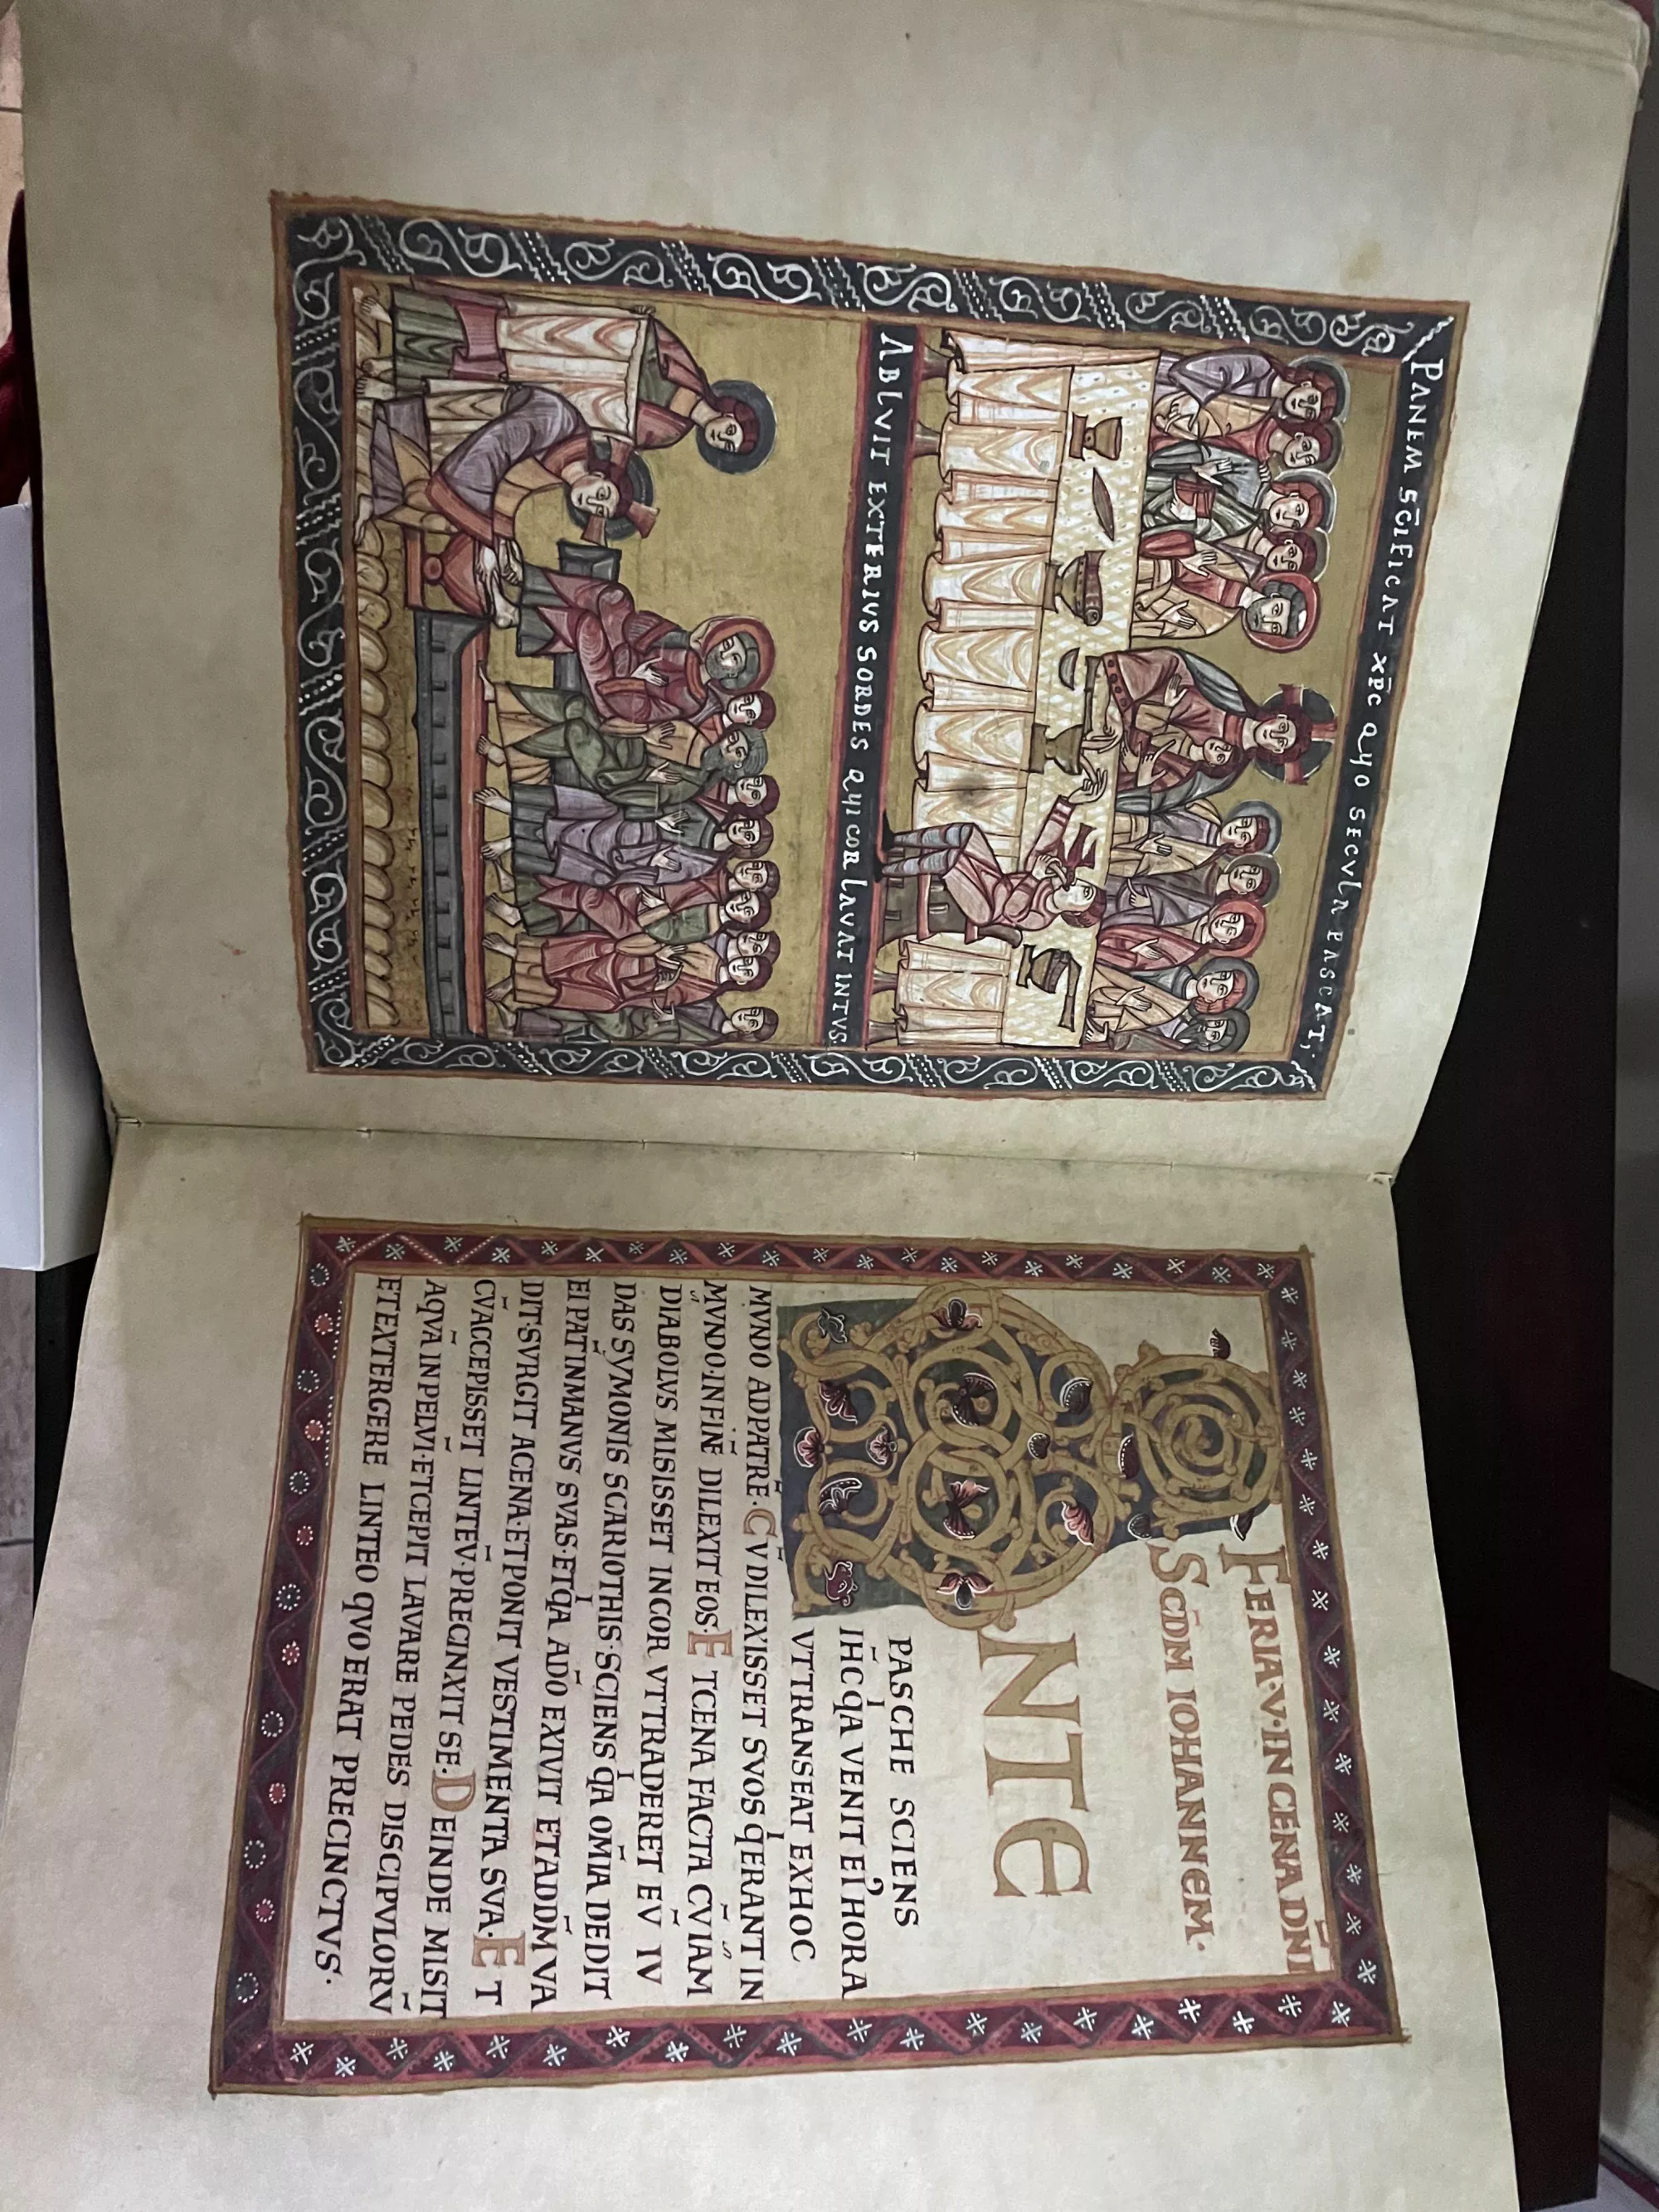 PANEM SC̄IFICAT XP̄C QUO SECVLA PASCAT;
ABLVIT EXTERIVS SORDES QUI COR LAVAT INTVS.
FERIA·V·IN CENA DN̄I
SCD̄M IOHANNEM·
ANTE
PASCHE SCIENS
IHC̄ QA VENIT EI HORA
VTTRANSEAT EXHOC
MVNDO ADPATRĒ· CV̄ DILEXISSET SVOS QERANT IN
MVNDO·INFINĒ DILEXIT EOS· ETCENA FACTA CV̄ IAM
DIABOLVS MISISSET INCOR VTTRADERET EV̄ IV
DAS SYMONIS SCARIOTHIS·SCIENS QA OM̄IA DEDIT
EI PAT̄ INMANVS SVAS·ETQA ADŌ EXIVIT ETADDM̄ VA
DIT·SVRGIT ACENA·ETPONIT VESTIMENTA SVA· ET
CV̄ACCEPISSET LINTEV̄·PRECINXIT SE· DEINDE MISIT
AQVĀ INPELVĪ·ETCEPIT LAVARE PEDES DISCIPVLORV̄
ETEXTERGERE LINTEO QVO ERAT PRECINCTVS·